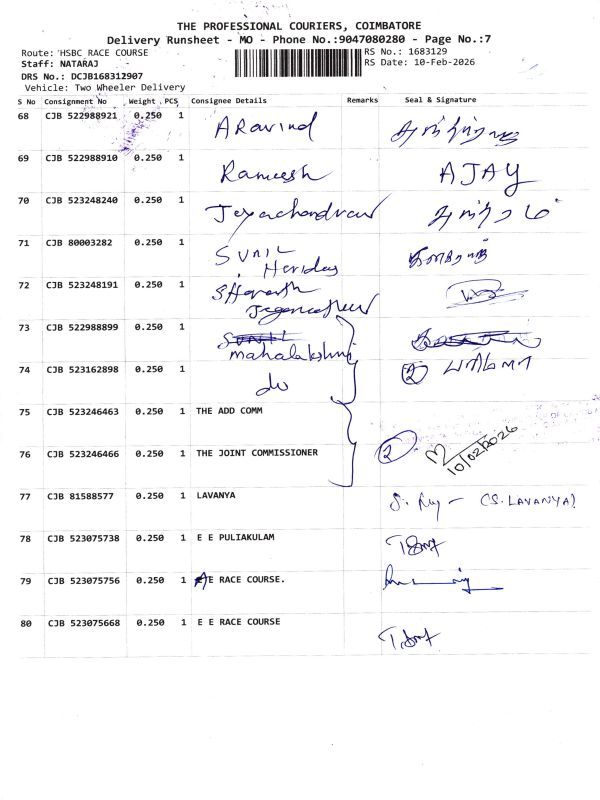 THE PROFESSIONAL COURIERS, COIMBATORE
Delivery Runsheet - MO - Phone No.:9047080280 - Page No.:7
Route: HSBC RACE COURSE
RS No.: 1683129
Staff: NATARAJ
RS Date: 10-Feb-2026
DRS No.: DCJB168312907
Vehicle: Two Wheeler Delivery
S No Consignment No Weight PCS Consignee Details Remarks Seal & Signature
68 CJB 522988921 0.250 1 Aravind
69 CJB 522988910 0.250 1 Rameesh AJAY
70 CJB 523248240 0.250 1 Jeyachandran
71 CJB 80003282 0.250 1 SUNIL
Haridas
72 CJB 523248191 0.250 1 Sharath
73 CJB 522988899 0.250 1
mahalakshmi
74 CJB 523162898 0.250 1 do 2
75 CJB 523246463 0.250 1 THE ADD COMM
76 CJB 523246466 0.250 1 THE JOINT COMMISSIONER 2 10/02/2026
77 CJB 81588577 0.250 1 LAVANYA (S. LAVANYA)
78 CJB 523075738 0.250 1 E E PULIAKULAM
79 CJB 523075756 0.250 1 AE RACE COURSE.
80 CJB 523075668 0.250 1 E E RACE COURSE